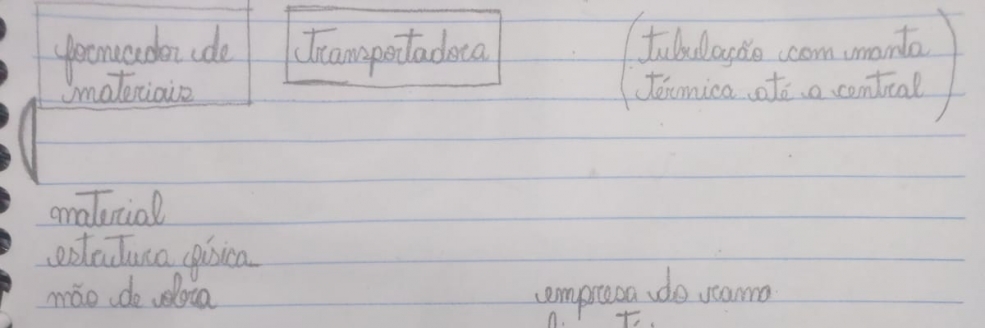 fornecedor de
materiais
transportadora
(tubulação com manta
térmica até a central)
material
estrutura física
mão de obra
empresa do ramo